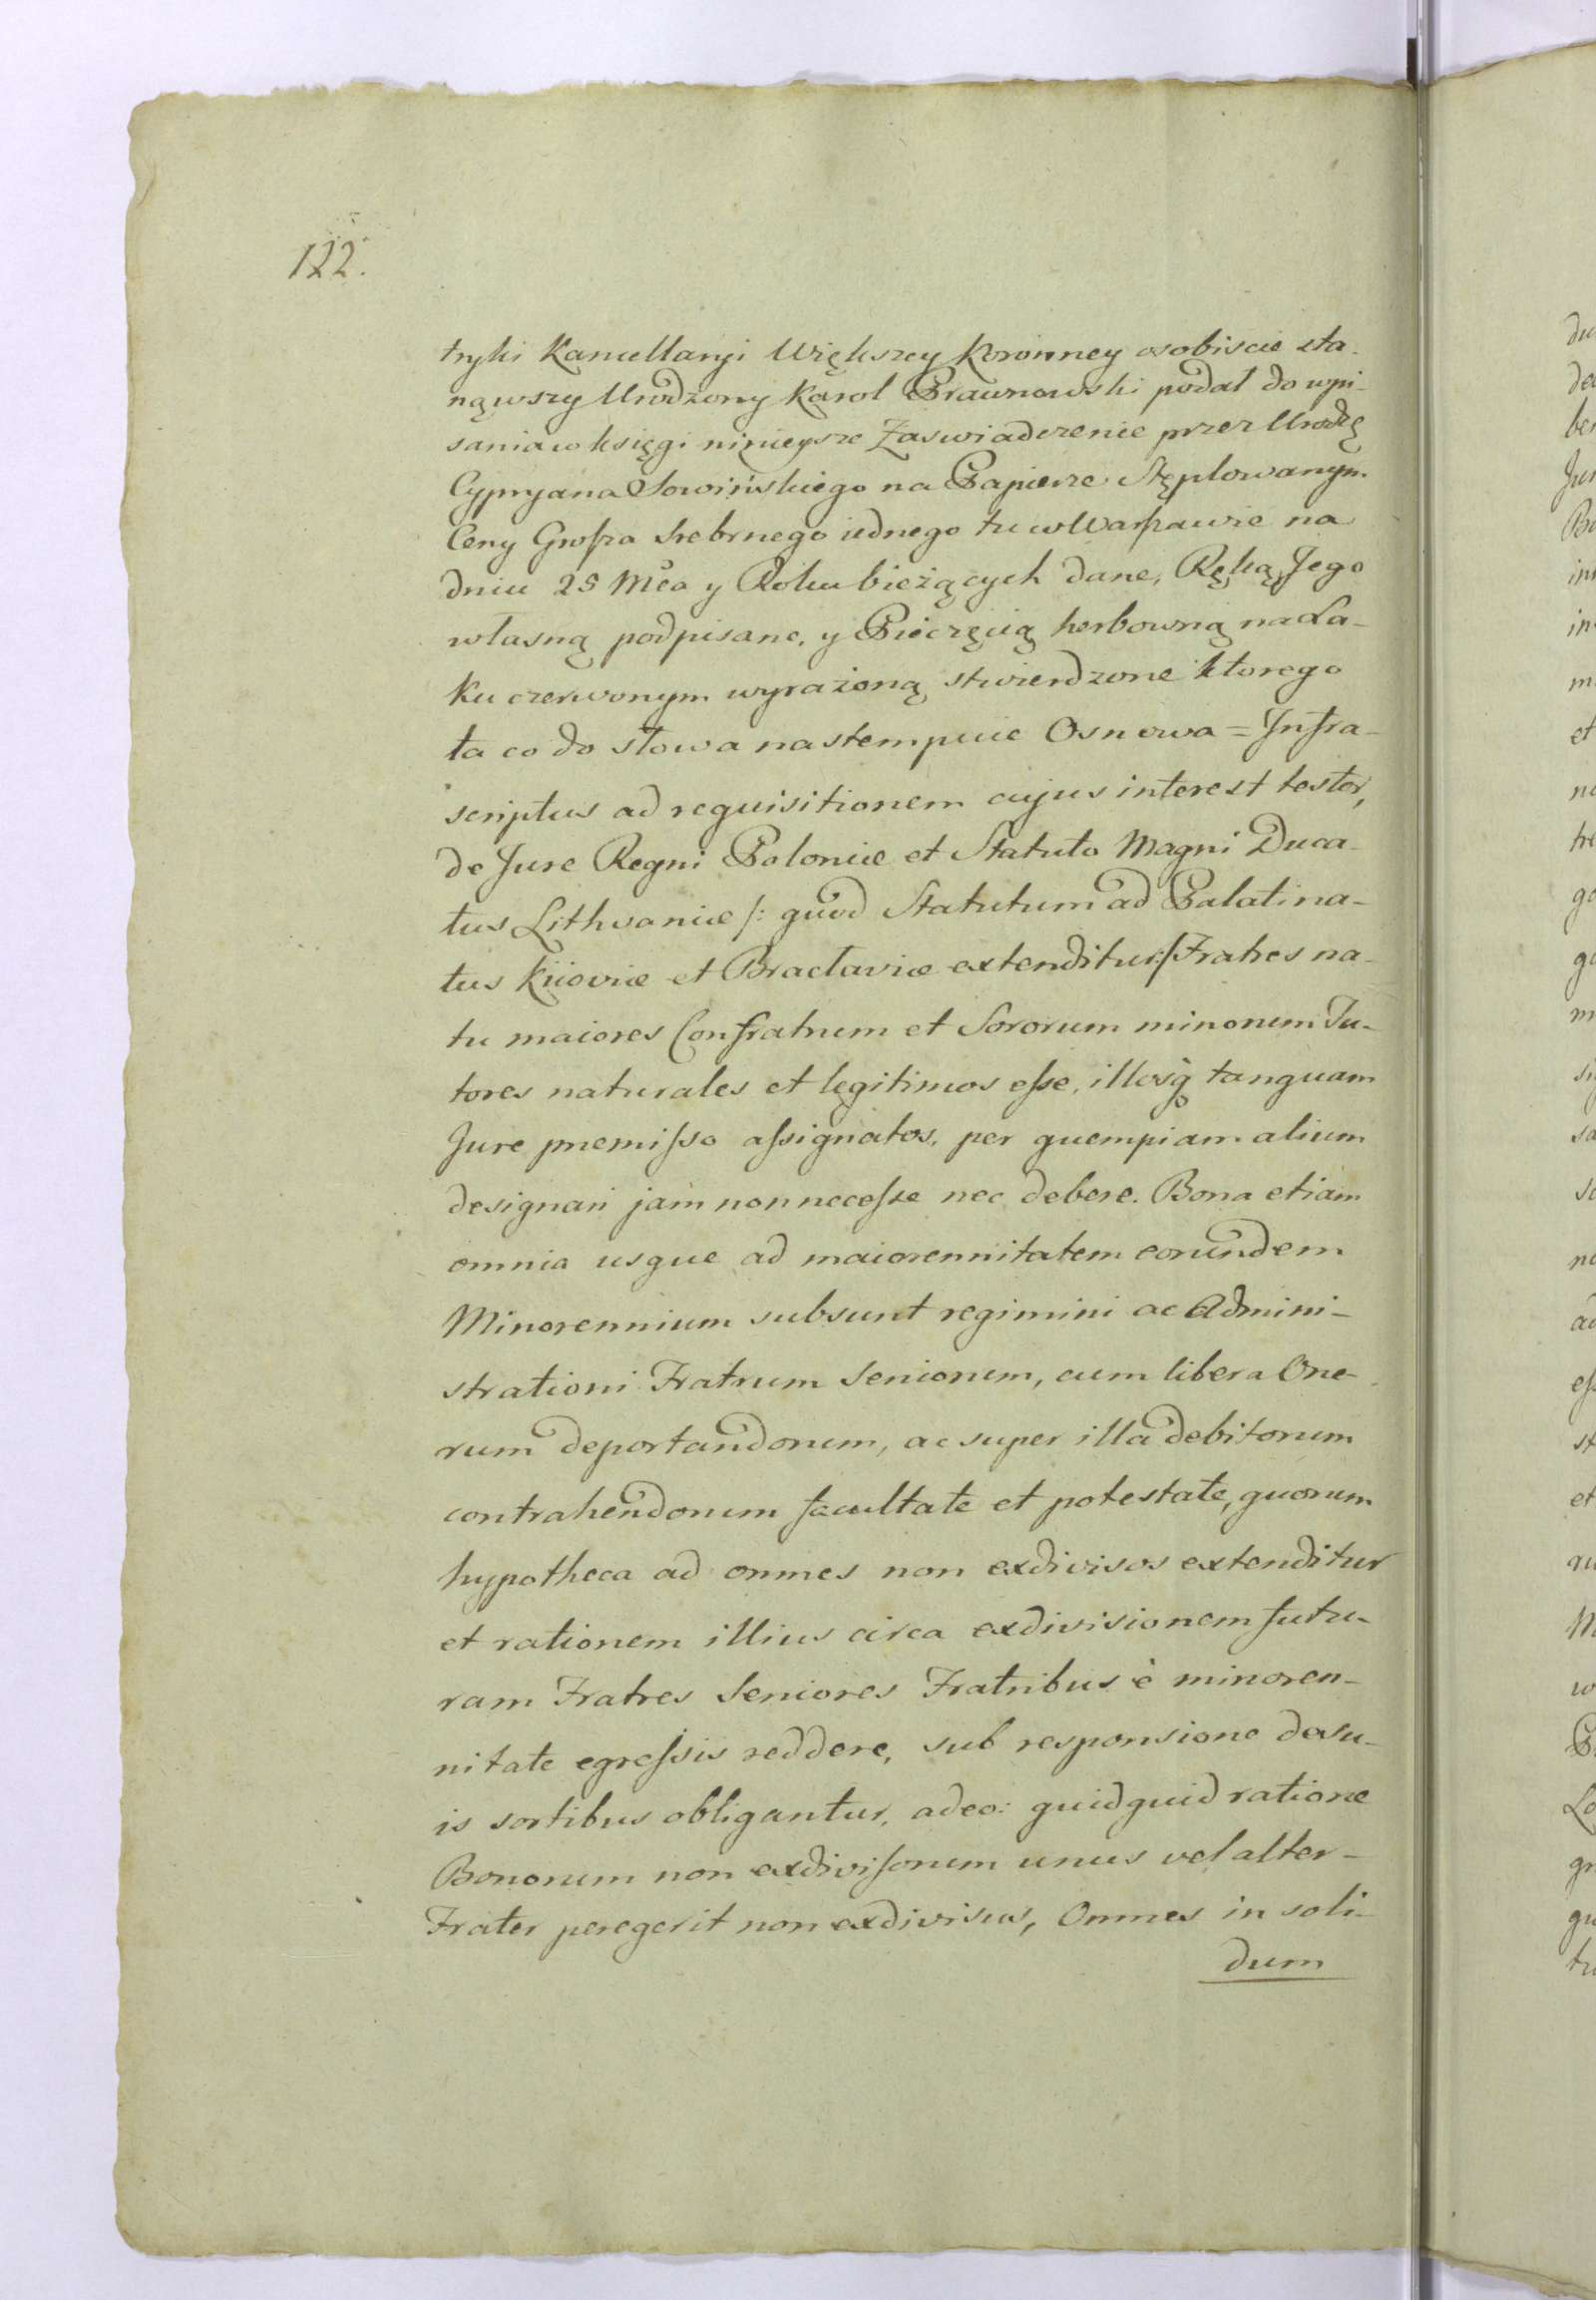 122.
tryki Kancellaryi Większey Koronney osobiscie sta-
nąwszy Urodzony Karol Prawnowski podał do wpi-
sania w księgi ninieysze Zaswiadczenie przez Urodzę
Cypryana Sowińskiego na Papierze Stęplowanym
Ceny Grosza srebrnego iednego tu w Warszawie na
dniu 25 Mca y Roku bieżących dane, Ręką Jego
własną podpisane, y Pieczęcią herbowną na La-
ku czerwonym wyrażoną stwierdzone ktorego
ta co do słowa nastempuie Osnowa = Infra-
scriptus ad requisitionem cujus interest testor,
de Jure Regni Poloniæ et Statuto Magni Duca-
tus Lithvaniæ /: quod Statutum ad Palatina-
tus Kiioviæ et Braclaviæ extenditur :/ Fratres na-
tu maiores Confratrum et Sororum minorum Tu-
tores naturales et legitimos eſse, illosq̀ tanquam
Jure premiſso aſsignatos, per quempiam alium
designari jam non neceſse nec debere. Bona etiam
omnia usque ad maiorennitatem eorundem
Minorennium subsunt regimini ac Admini-
strationi Fratrum Seniorum, cum libera One-
rum deportandorum, ac super illa debitorum
contrahendorum facultate et potestate, quorum
hypotheca ad omnes non exdivisos extenditur
et rationem illius circa exdivisionem futu-
ram Fratres Seniores Fratribus è minoren-
nitate egreſsis reddere, sub responsione de su-
is sortibus obligantur, adeo: quidquid ratione
Bonorum non exdiviſorum unus vel alter-
Frater peregerit non exdivisus, Omnes in soli-
dum